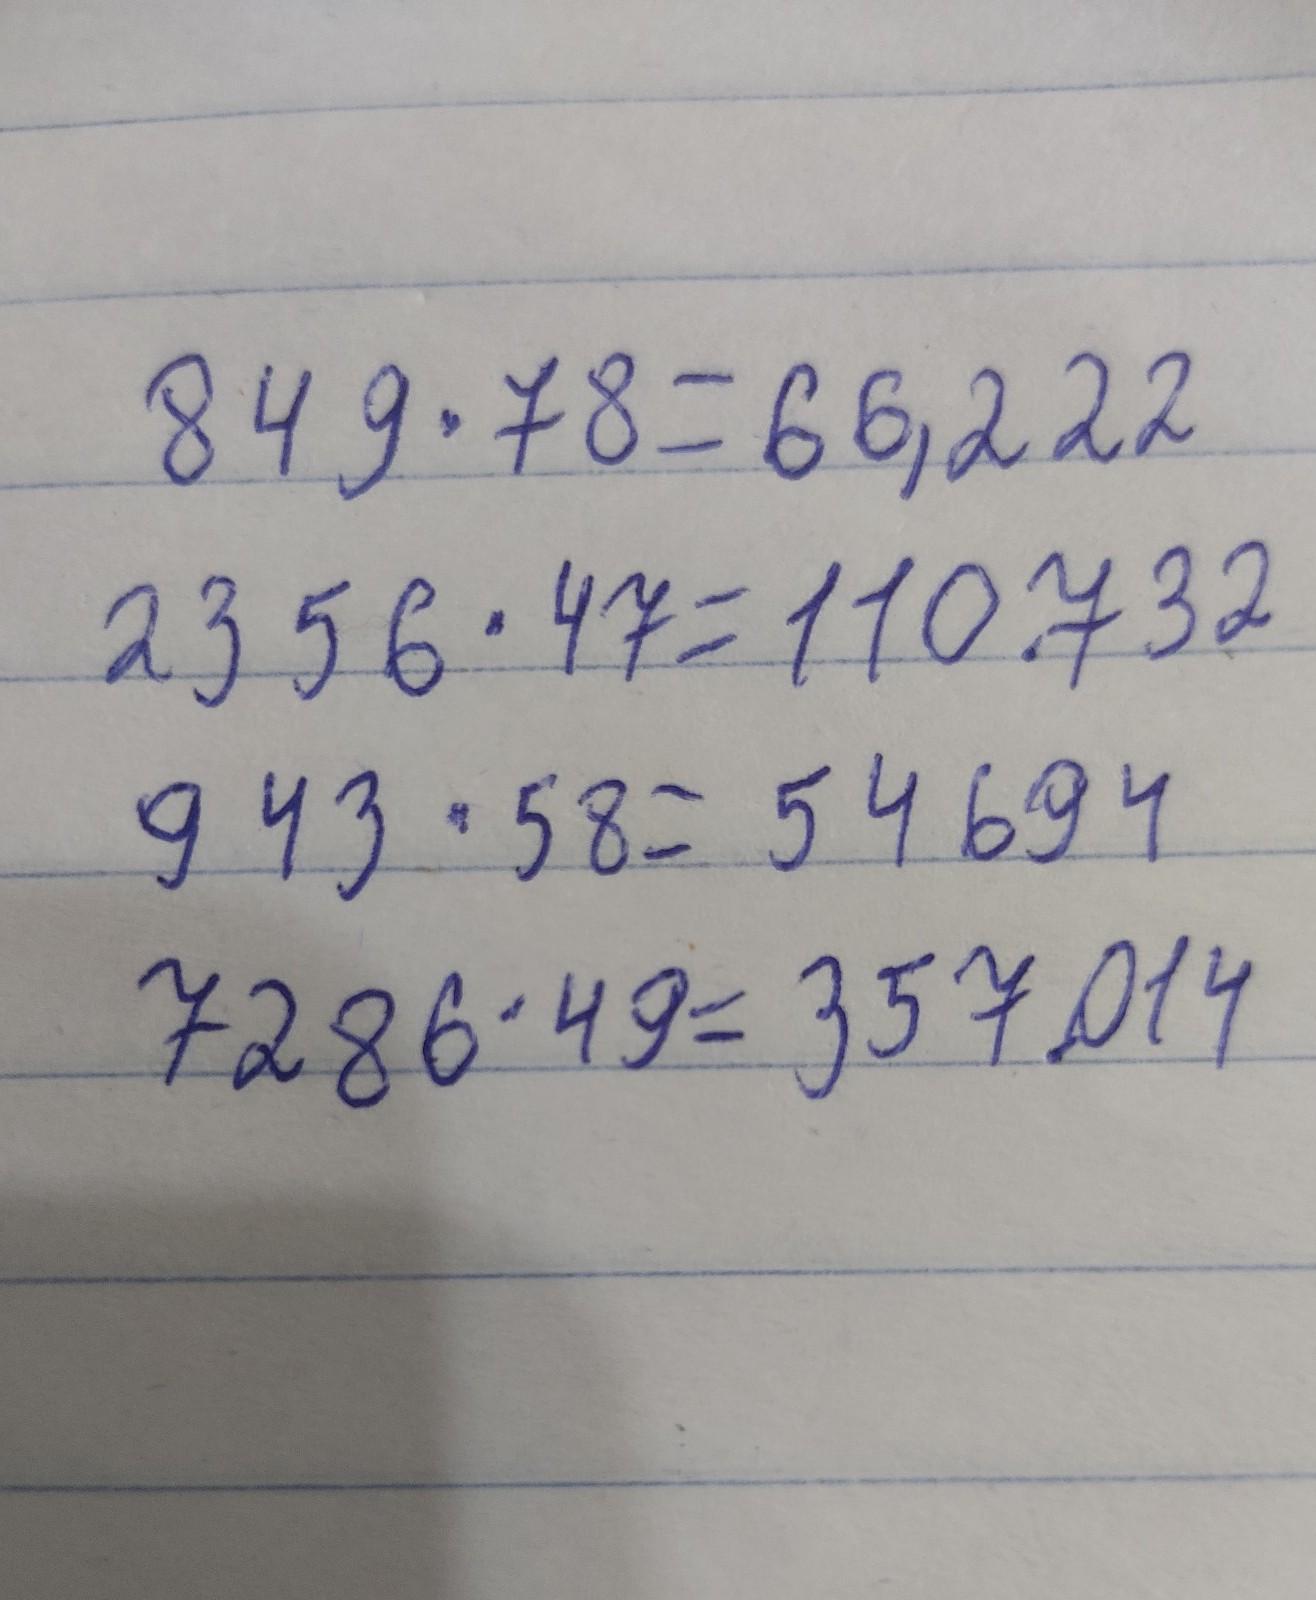 849·78=66,222
2356·47=110.732
943·58=54694
7286·49=357.014